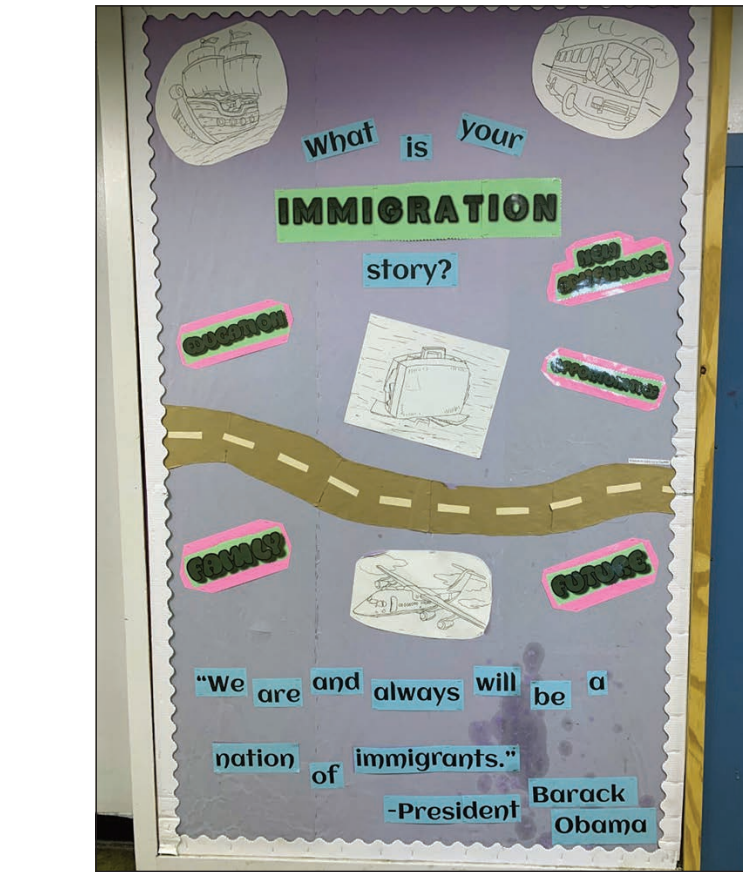 What is your
IMMIGRATION
story?
NEW
ADVENTURE
EDUCATION
OPPORTUNITIES
FAMILY
FUTURE
“We are and always will be a
nation of immigrants.”
-President Barack
Obama